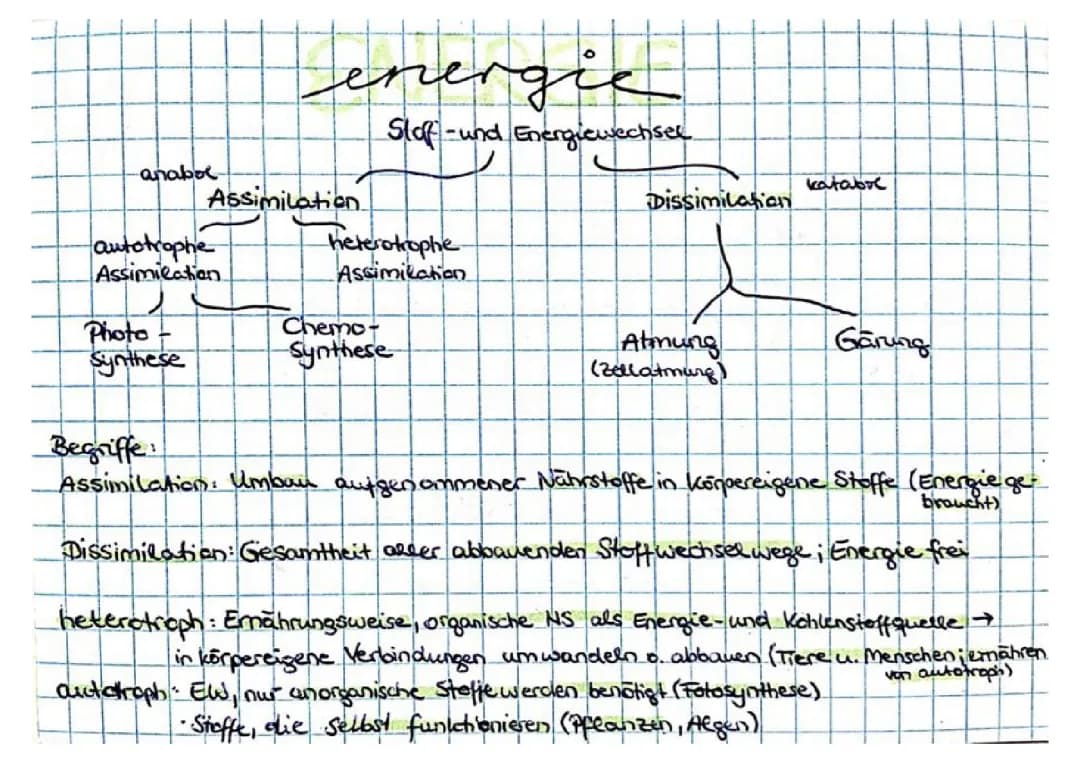 ENERGIE
energie
Stoff-und Energiewechsel
anabol
Assimilation
katabol
Dissimilation
autotrophe
Assimilation
heterotrophe
Assimilation
Photo-
synthese
Chemo-
Synthese
Atmung
(Zellatmung)
Gärung
Begriffe:
Assimilation: Umbau aufgenommener Nährstoffe in körpereigene Stoffe (Energie ge-
braucht)
Dissimilation: Gesamtheit aller abbauenden Stoffwechselwege; Energie frei
heterotroph: Ernährungsweise, organische NS als Energie-und Kohlenstoffquelle →
in körpereigene Verbindungen umwandeln o. abbauen (Tiere u. Menschen; ernähren
von autotroph)
autotroph: EW, nur anorganische Stoffe werden benötigt (Fotosynthese)
· Stoffe, die selbst funktionieren (Pflanzen, Algen)